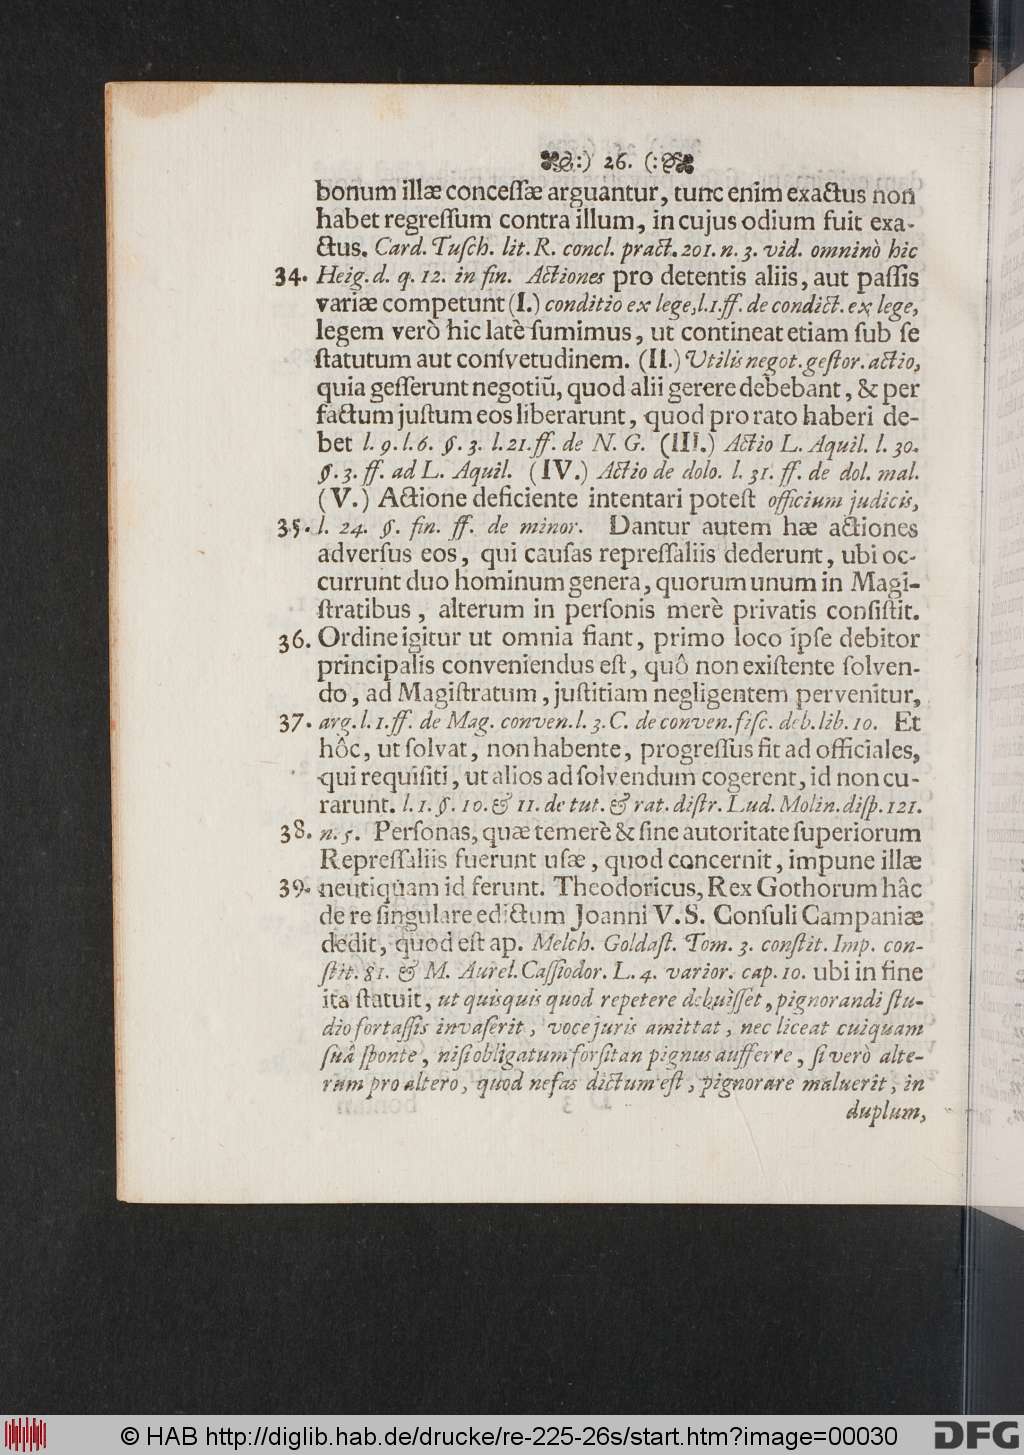 :) 26. (:
bonum illæ concessæ arguantur, tunc enim exactus non
habet regressum contra illum, in cujus odium fuit exa-
ctus. Card. Tusch. lit. R. concl. pract. 201. n. 3. vid. omninò hic
34. Heig. d. q. 12. in fin. Actiones pro detentis aliis, aut passis
variæ competunt (I.) conditio ex lege, l. 1. ff. de condict. ex lege,
legem verò hic latè sumimus, ut contineat etiam sub se
statutum aut consvetudinem. (II.) Utilis negot. gestor. actio,
quia gesserunt negotiũ, quod alii gerere debebant, & per
factum justum eos liberarunt, quod pro rato haberi de-
bet l. 9. l. 6. §. 3. l. 21. ff. de N. G. (III.) Actio L. Aquil. l. 30.
§. 3. ff. ad L. Aquil. (IV.) Actio de dolo. l. 31. ff. de dol. mal.
(V.) Actione deficiente intentari potest officium judicis,
35. l. 24. §. fin. ff. de minor. Dantur autem hæ actiones
adversus eos, qui causas repressaliis dederunt, ubi oc-
currunt duo hominum genera, quorum unum in Magi-
stratibus, alterum in personis merè privatis consistit.
36. Ordine igitur ut omnia fiant, primo loco ipse debitor
principalis conveniendus est, quô non existente solven-
do, ad Magistratum, justitiam negligentem pervenitur,
37. arg. l. 1. ff. de Mag. conven. l. 3. C. de conven. fisc. deb. lib. 10. Et
hôc, ut solvat, non habente, progressus fit ad officiales,
qui requisiti, ut alios ad solvendum cogerent, id non cu-
rarunt. l. 1. §. 10. & 11. de tut. & rat. distr. Lud. Molin. disp. 121.
38. n. 5. Personas, quæ temerè & sine autoritate superiorum
Repressaliis fuerunt usæ, quod concernit, impune illæ
39. neutiquam id ferunt. Theodoricus, Rex Gothorum hâc
de re singulare edictum Joanni V. S. Consuli Campaniæ
dedit, quod est ap. Melch. Goldast. Tom. 3. constit. Imp. con-
stit. 81. & M. Aurel. Cassiodor. L. 4. varior. cap. 10. ubi in fine
ita statuit, ut quisquis quod repetere debuisset, pignorandi stu-
dio fortassis invaserit, voce juris amittat, nec liceat cuiquam
suâ sponte, nisi obligatum forsitan pignus aufferre, si verò alte-
rum pro altero, quod nefas dictum est, pignorare maluerit, in
duplum,
© HAB http://diglib.hab.de/drucke/re-225-26s/start.htm?image=00030
DFG